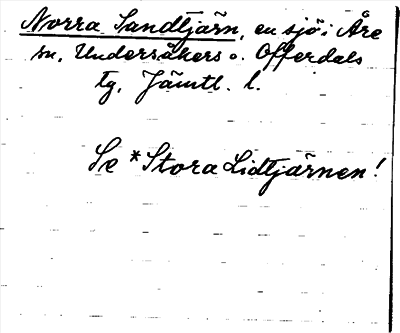 Norra Sandtjärn, en sjö i Åre
sn, Undersåkers o. Offerdals
tg, Jämtl. l.
Se *Stora Lidtjärnen!